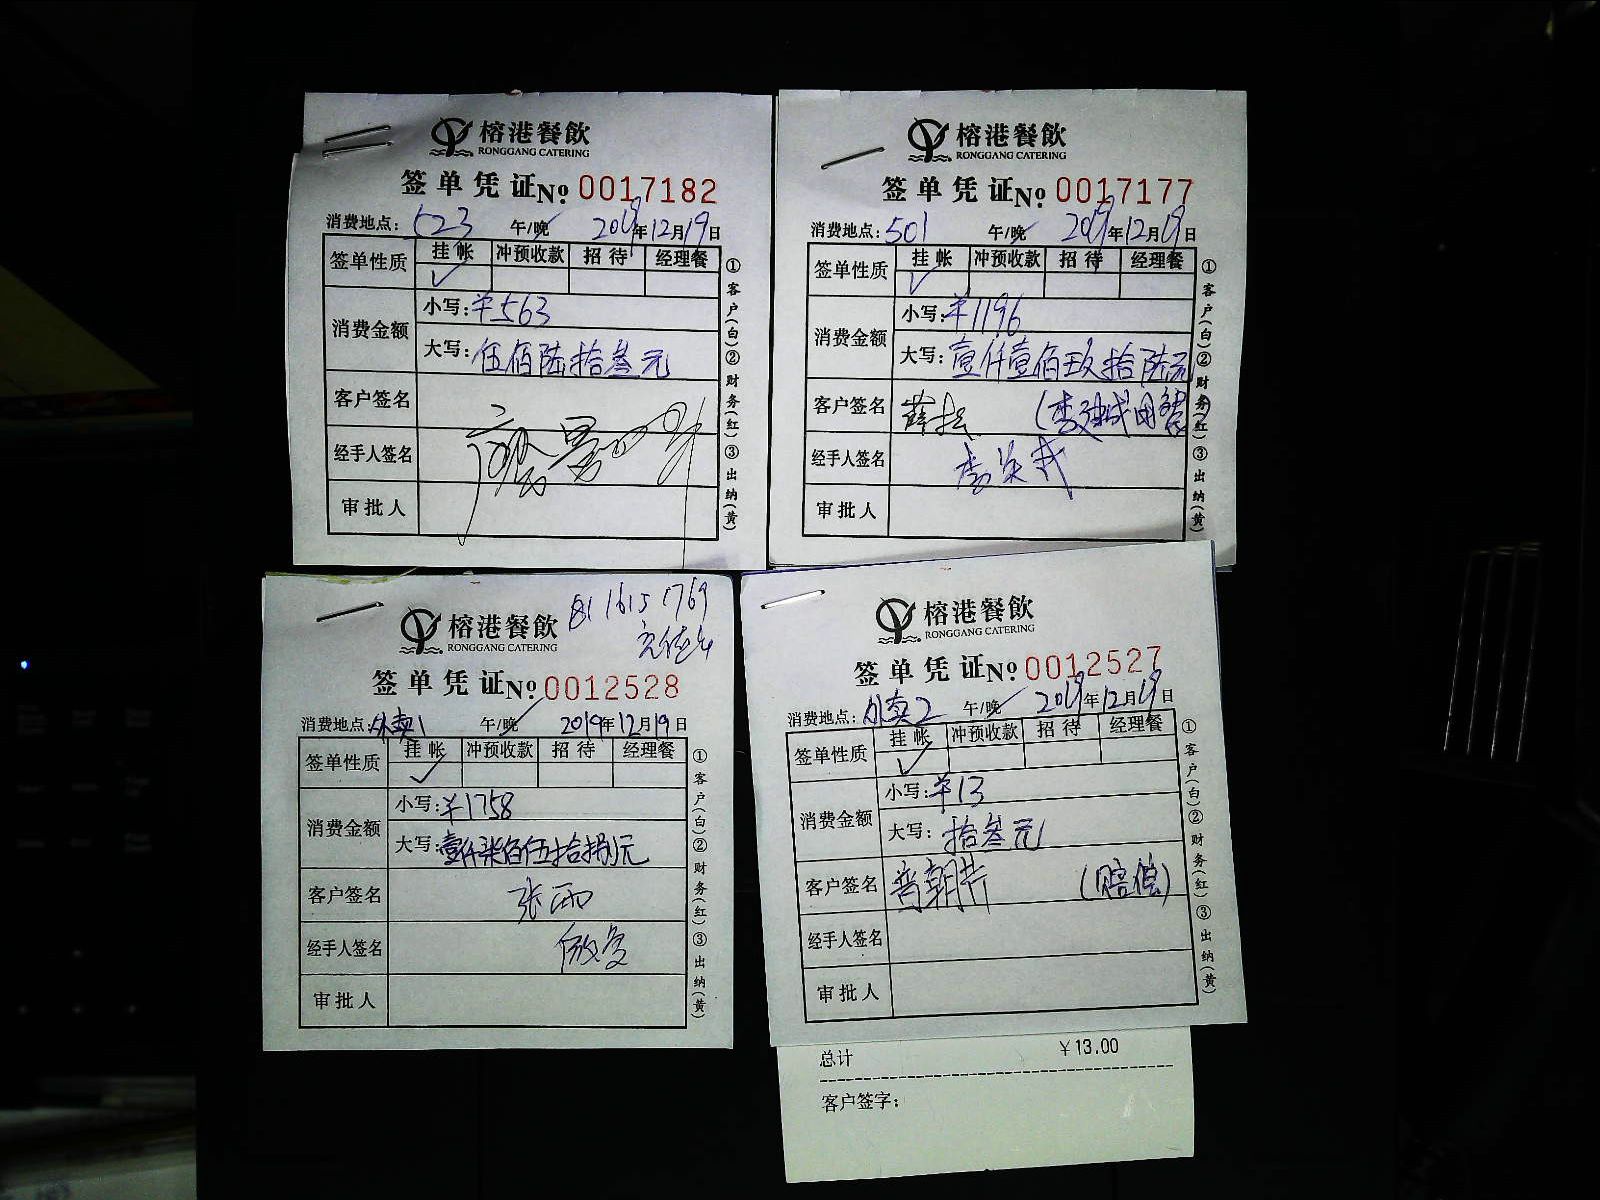 榕港餐飲
RONGGANG CATERING
签单凭证 № 0017182
消费地点: 523 午/晚 2019年12月19日
签单性质 挂帐 冲预收款 招待 经理餐
✓
消费金额 小写: ¥563
大写: 伍佰陆拾叁元
客户签名
经手人签名
审批人
①客户(白)②财务(红)③出纳(黄)
榕港餐飲
RONGGANG CATERING
签单凭证 № 0017177
消费地点: 501 午/晚 2019年12月19日
签单性质 挂帐 冲预收款 招待 经理餐
✓
消费金额 小写: ¥1196
大写: 壹仟壹佰玖拾陆元
客户签名
经手人签名
审批人
①客户(白)②财务(红)③出纳(黄)
榕港餐飲
RONGGANG CATERING
签单凭证 № 0012528
消费地点: 外卖1 午/晚 2019年12月19日
签单性质 挂帐 冲预收款 招待 经理餐
✓
消费金额 小写: ¥1758
大写: 壹仟柒佰伍拾捌元
客户签名 张雨
经手人签名
审批人
①客户(白)②财务(红)③出纳(黄)
榕港餐飲
RONGGANG CATERING
签单凭证 № 0012527
消费地点: 外卖2 午/晚 2019年12月19日
签单性质 挂帐 冲预收款 招待 经理餐
✓
消费金额 小写: ¥13
大写: 拾叁元
客户签名 (赔偿)
经手人签名
审批人
①客户(白)②财务(红)③出纳(黄)
总计 ¥13.00
客户签字: